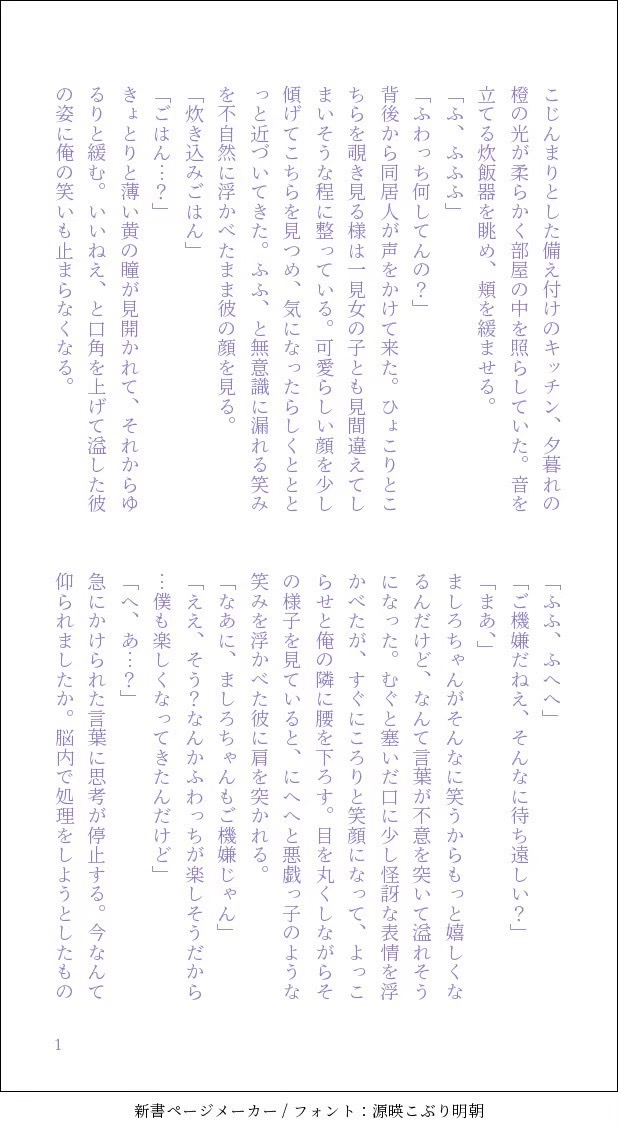 こじんまりとした備え付けのキッチン、夕暮れの
橙の光が柔らかく部屋の中を照らしていた。音を
立てる炊飯器を眺め、頬を緩ませる。
「ふ、ふふふ」
「ふわっち何してんの？」
背後から同居人が声をかけて来た。ひょこりとこ
ちらを覗き見る様は一見女の子とも見間違えてし
まいそうな程に整っている。可愛らしい顔を少し
傾げてこちらを見つめ、気になったらしくととと
っと近づいてきた。ふふ、と無意識に漏れる笑み
を不自然に浮かべたまま彼の顔を見る。
「炊き込みごはん」
「ごはん…？」
きょとりと薄い黄の瞳が見開かれて、それからゆ
るりと緩む。いいねえ、と口角を上げて溢した彼
の姿に俺の笑いも止まらなくなる。
「ふふ、ふへへ」
「ご機嫌だねえ、そんなに待ち遠しい？」
「まあ、」
ましろちゃんがそんなに笑うからもっと嬉しくな
るんだけど、なんて言葉が不意を突いて溢れそう
になった。むぐと塞いだ口に少し怪訝な表情を浮
かべたが、すぐにころりと笑顔になって、よっこ
らせと俺の隣に腰を下ろす。目を丸くしながらそ
の様子を見ていると、にへへと悪戯っ子のような
笑みを浮かべた彼に肩を突かれる。
「なあに、ましろちゃんもご機嫌じゃん」
「ええ、そう？なんかふわっちが楽しそうだから
…僕も楽しくなってきたんだけど」
「へ、あ…？」
急にかけられた言葉に思考が停止する。今なんて
仰られましたか。脳内で処理をしようとしたもの
1
新書ページメーカー / フォント：源暎こぶり明朝